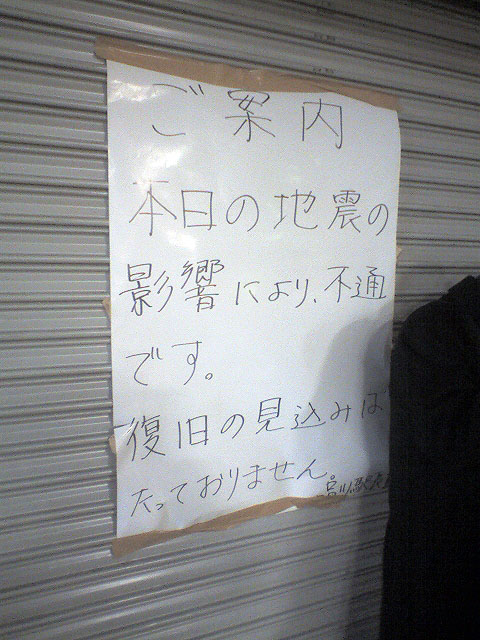 ご案内
本日の地震の
影響により、不通
です。
復旧の見込みは
たっておりません。